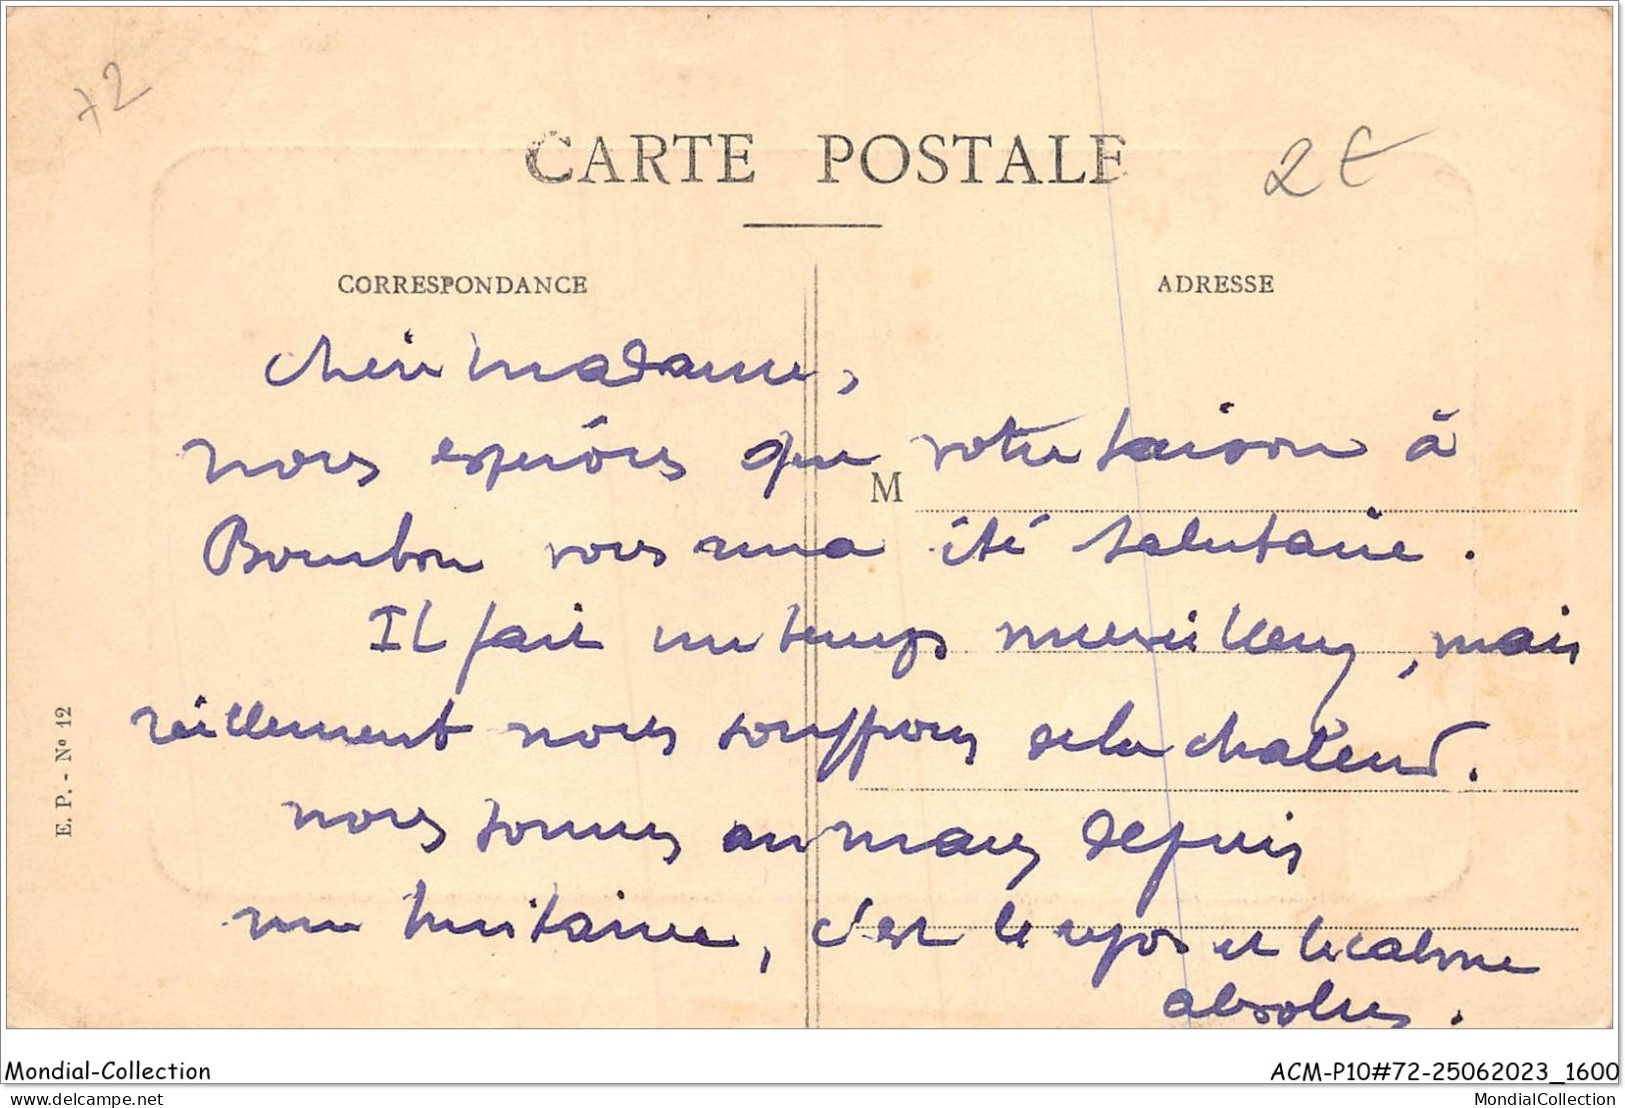 72
CARTE POSTALE
2€
CORRESPONDANCE
ADRESSE
Chère Madame,
nous espérons que votre saison à
M
Bourbon vous aura été salutaire.
Il fait un temps merveilleux, mais
réellement nous souffrons de la chaleur.
nous sommes au mans depuis
une huitaine, c'est le repos et le calme
absolus.
E. P. - Nº 12
Mondial-Collection
ACM-P10#72-25062023_1600
Mondial-Collection.net
MondialCollection